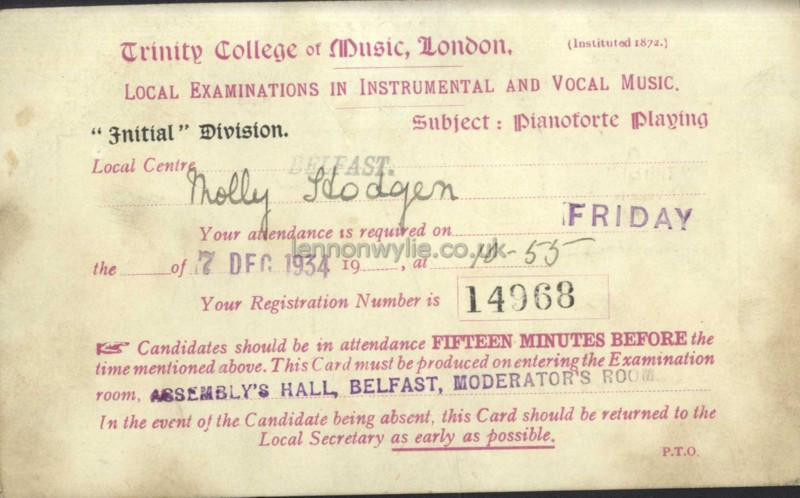 Trinity College of Music, London. (Instituted 1872.)
LOCAL EXAMINATIONS IN INSTRUMENTAL AND VOCAL MUSIC.
"Initial" Division. Subject: Pianoforte Playing
Local Centre BELFAST.
Molly Hodgen
Your attendance is required on FRIDAY
lennonwylie.co.uk
the of 7 DEC 1934 19 , at -55
Your Registration Number is 14968
☞ Candidates should be in attendance FIFTEEN MINUTES BEFORE the
time mentioned above. This Card must be produced on entering the Examination
room, ASSEMBLY'S HALL, BELFAST, MODERATOR'S ROOM
In the event of the Candidate being absent, this Card should be returned to the
Local Secretary as early as possible.
P.T.O.